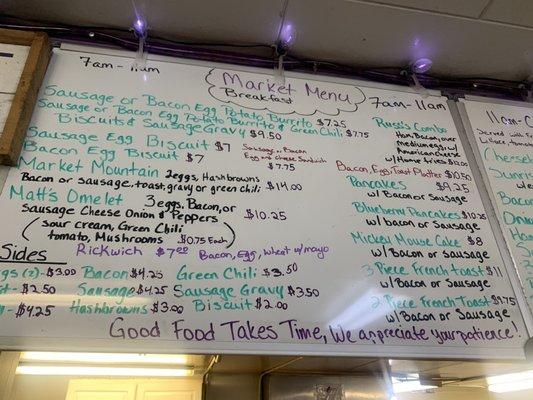 7am-11am
Market Menu
Breakfast
Sausage or Bacon Egg Potato Burrito $7.25
Sausage or Bacon Egg Potato Burrito & Green Chili $7.75
Biscuits & Sausage Gravy $9.50
Sausage Egg Biscuit $7
Bacon Egg Biscuit $7
Sausage or Bacon
Egg and Cheese Sandwich
$7.75
Market Mountain 2 eggs, Hashbrowns
Bacon or Sausage, toast, gravy or green chili $14.00
Matt's Omelet 3 eggs, Bacon, or
Sausage Cheese Onion & Peppers $10.25
(Sour cream, Green Chili
tomato, Mushrooms $0.75 Each)
Rickwich $7.00 Bacon, Egg, wheat w/mayo
Sides
gs (2) - $3.00 Bacon $4.25 Green Chili $3.50
$2.50 Sausage $4.25 Sausage Gravy $3.50
$4.25 Hashbrowns $3.00 Biscuit $2.00
7am-11am
Russ's Combo
Ham, Bacon over
medium egg, w/
American Cheese
w/Home fries $12.00
Bacon, Egg, Toast Platter $10.50
Pancakes $9.25
w/ Bacon or Sausage
Blueberry Pancakes $10.25
w/ Bacon or Sausage
Mickey Mouse Cake $8
w/ Bacon or Sausage
3 Piece French toast $11
w/ Bacon or Sausage
2 Piece French Toast $9.75
w/ Bacon or Sausage
Good Food Takes Time, We appreciate your patience!
11am-
Served with
Lettuce, toma
Cheese
Sunris
Baco